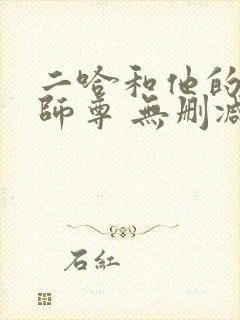 二哈和他的
師尊 無刪減
石紅